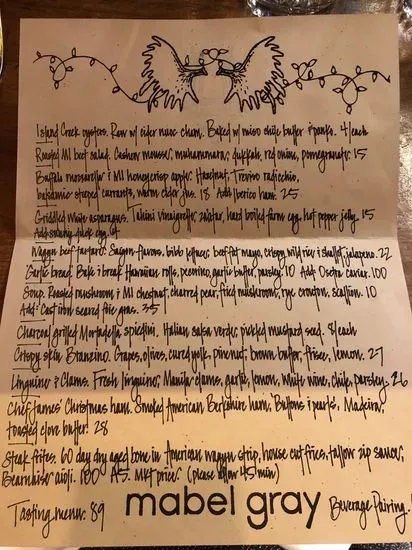 Island Creek oysters. Raw w/ cider nuoc cham. Baked w/ miso chile butter & panko. 4/each
Roasted MI beet salad. Cashew mousse, muhammara, dukkah, red onion, pomegranate. 15
Buffalo mozzarella & MI honeycrisp apple. Hazelnut, Treviso radicchio,
balsamic steeped currants, warm cider jus. 18 Add Iberico ham. 25
Griddled white asparagus. Tahini vinaigrette, za'atar, hard boiled farm egg, hot pepper jelly. 15
Add egg. 6
Wagyu beef tartare. Saigon flavors, bibb lettuce, beef fat mayo, crispy wild rice & shallot, jalapeno. 22
Garlic bread. Bake & break Hawaiian rolls, pecorino, garlic butter, parsley. 10 Add Osetra caviar. 100
Soup. Roasted mushroom & MI chestnut, charred pear, fried mushroom, rye crouton, scallion. 10
Add: Cast iron seared foie gras. 35
Charcoal grilled Mortadella spiedini. Italian salsa verde, pickled mustard seed. 8/each
Crispy skin Branzino. Grapes, olives, curd yolk, pine nut, brown butter, frisee, lemon. 27
Linguine & Clams. Fresh linguine, Manila clams, garlic, lemon, white wine, chile, parsley. 26
Chef James' Christmas ham. Smoked American Berkshire ham, Buttons & pearls, Madeira,
toasted clove butter! 28
Steak frites. 60 day dry aged bone in American wagyu strip, house cut fries, tallow zip sauce,
Bearnaise aioli. 100 A5. Mkt price. (please allow 45 min)
Tasting menu: 89 mabel gray Beverage Pairing.